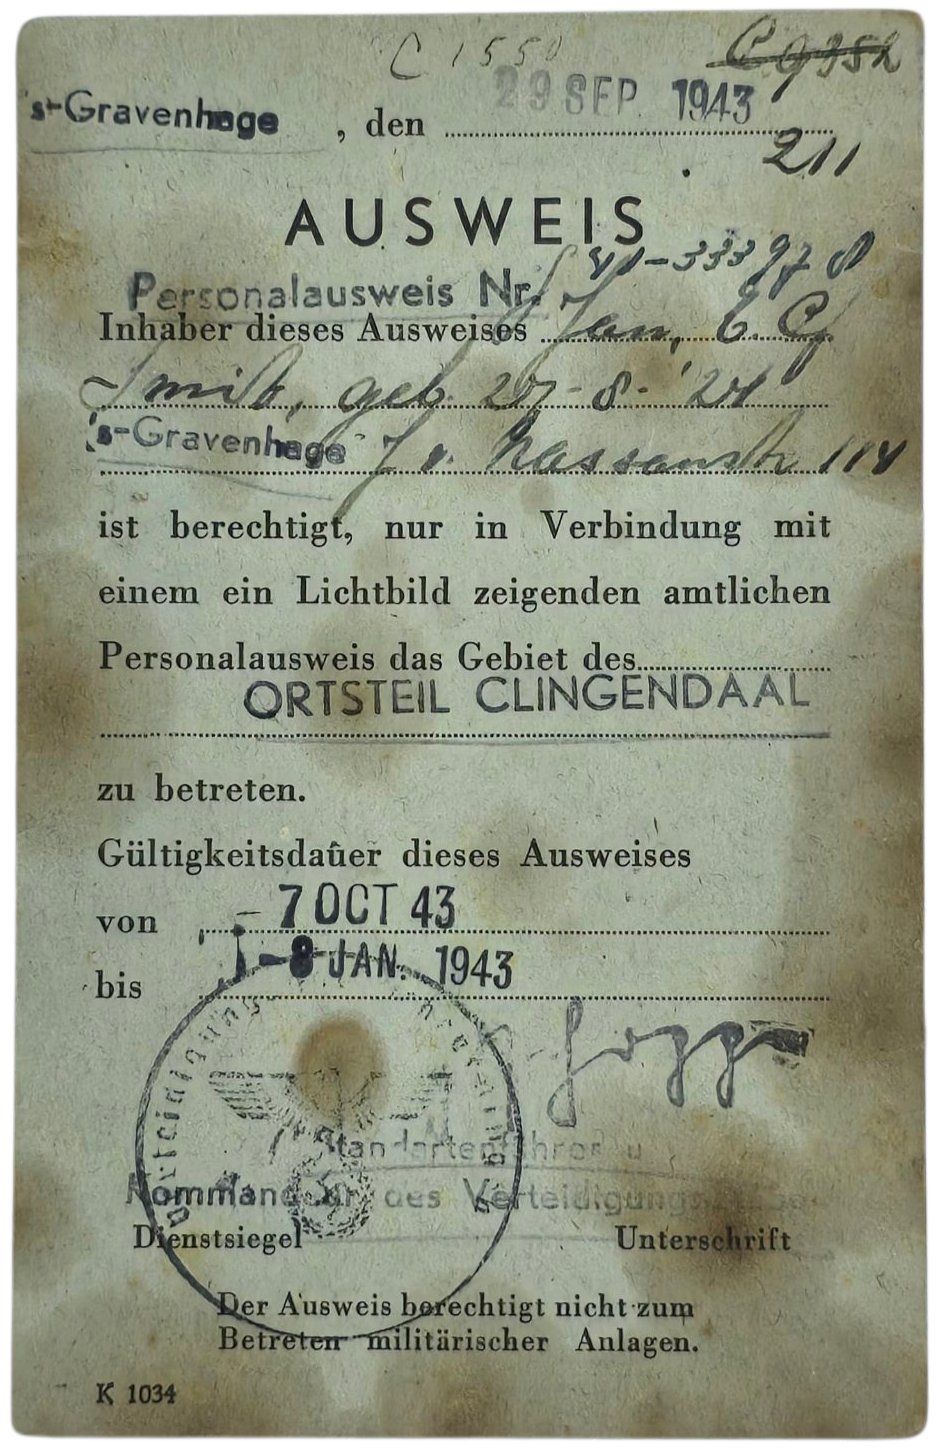 C 1550
C 9352
's-Gravenhage , den 29 SEP. 1943
211
AUSWEIS
Personalausweis Nr.
Inhaber dieses Ausweises Jan, C.
Smit, geb. 8-'21
's-Gravenhage J v. Nassaustr 114
ist berechtigt, nur in Verbindung mit
einem ein Lichtbild zeigenden amtlichen
Personalausweis das Gebiet des
ORTSTEIL CLINGENDAAL
zu betreten.
Gültigkeitsdauer dieses Ausweises
von - 7 OCT 43
bis - 8 JAN. 1943
Standartenführer u
Kommandeur des Verteidigungs
Dienstsiegel Unterschrift
Der Ausweis berechtigt nicht zum
Betreten militärischer Anlagen.
K 1034